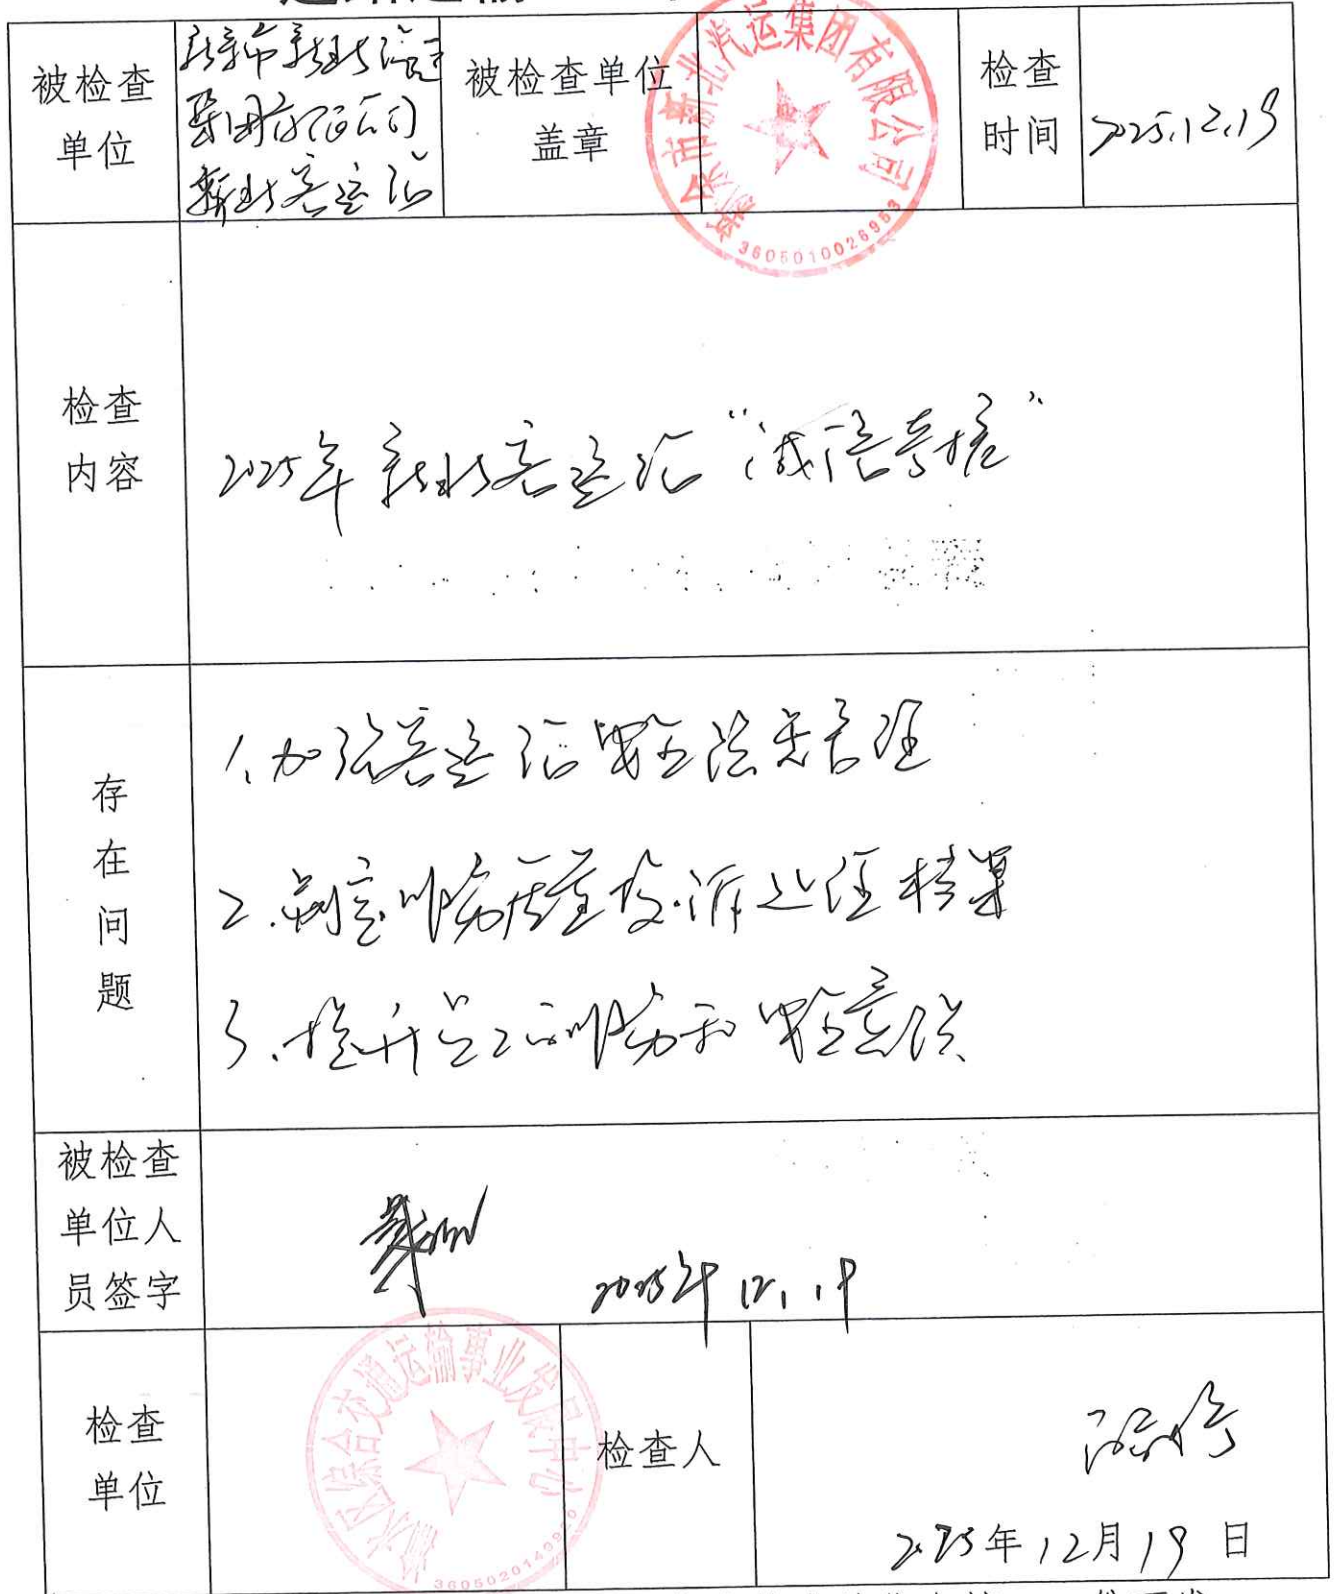 被检查
单位
新余市新北汽运
集团有限公司
新北客运站
被检查单位
盖章
新余市新北汽运集团有限公司
3605010026953
检查
时间
2025.12.19
检查
内容
2025年新北客运站“诚信考核”
存
在
问
题
1.加强客运站安全法规管理
2.制定服务质量投诉处理档案
3.提升员工的服务和安全意识
被检查
单位人
员签字
2025年12.19
检查
单位
渝水区综合交通运输事业发展中心
检查人
2025年12月19日